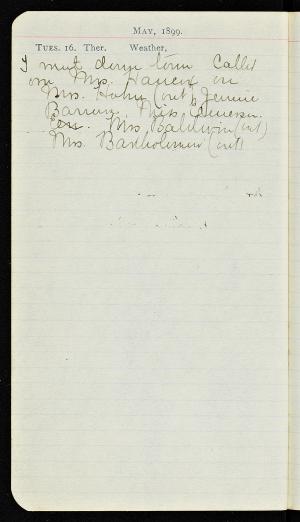 MAY, 1899.
TUES. 16. Ther. Weather,
I went down town Called
on Mrs. on
Mrs. (out) Jennie
Barnum, Miss Emerson.
Mrs. Baldwin (out)
Mrs. Bartholomew (out)